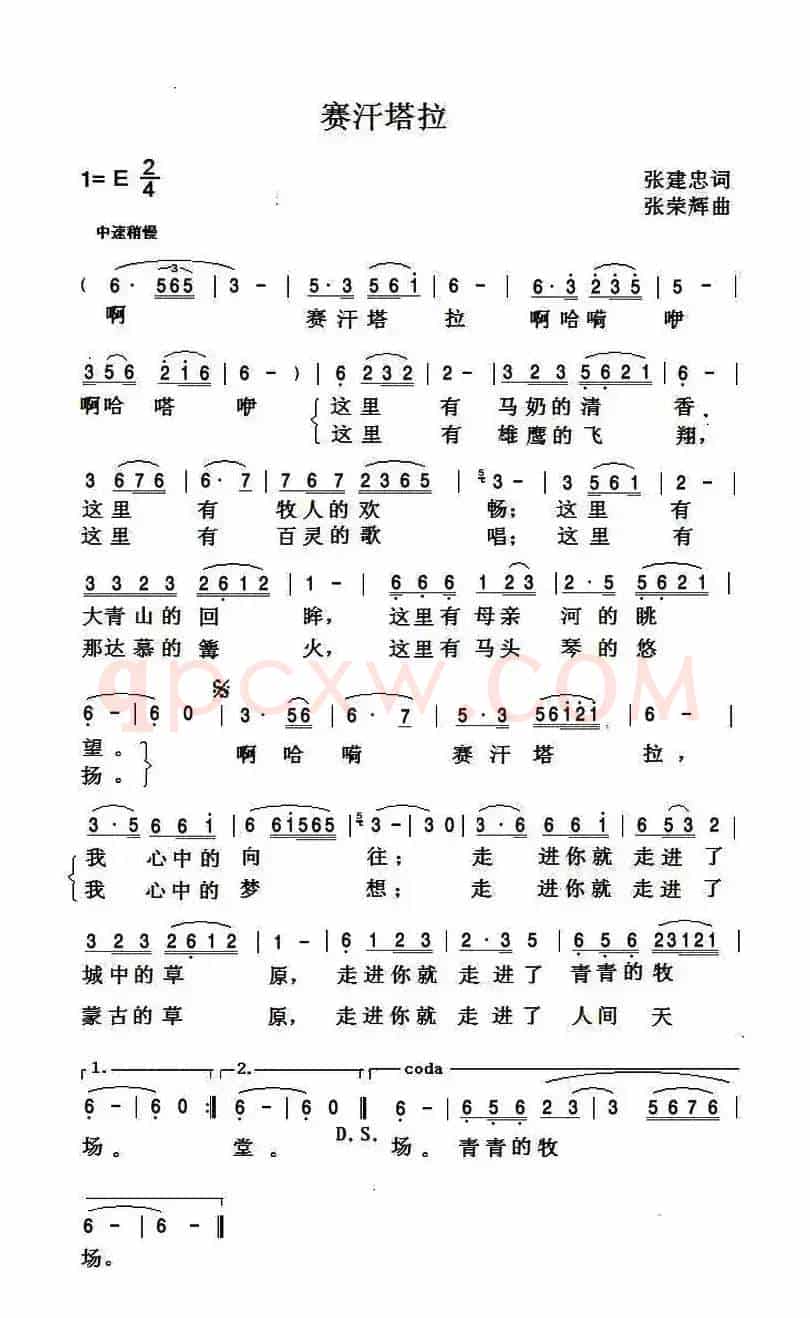 赛汗塔拉
1= E 2/4
张建忠词
张荣辉曲
中速稍慢
( 6· 565 | 3 - | 5·3 561 | 6 - | 6·3 235 | 5 - |
啊 赛汗塔 拉 啊哈嗬 咿
356 216 | 6 - ) | 6 232 | 2 - | 323 5621 | 6 - |
啊哈 嗒 咿 这里 有 马奶的清 香,
这里 有 雄鹰的飞 翔,
3 676 | 6·7 | 767 2365 | 5 3 - | 3 561 | 2 - |
这里 有 牧人的欢 畅; 这里 有
这里 有 百灵的歌 唱; 这里 有
3323 2612 | 1 - | 666 123 | 2·5 5621 |
大青山的回 眸, 这里有母亲 河的眺
那达慕的篝 火, 这里有马头 琴的悠
qpcxw.com
6 - | 6 0 | 3·56 | 6·7 | 5·3 56121 | 6 - |
望。 啊哈嗬 赛汗塔 拉,
扬。
3·5 661 | 6 61565 | 5 3 - | 3 0 | 3·6 661 | 6 53 2 |
我 心中的向 往; 走 进你就走进了
我 心中的梦 想; 走 进你就走进了
323 2612 | 1 - | 6 123 | 2·3 5 | 656 23121 |
城中的草 原, 走进你就走进了 青青的牧
蒙古的草 原, 走进你就走进了 人间 天
1. 2. coda
6 - | 6 0 :‖ 6 - | 6 0 ‖ 6 - | 656 23 | 3 5676 |
场。 堂。 D.S. 场。青青的牧
6 - | 6 - ‖
场。